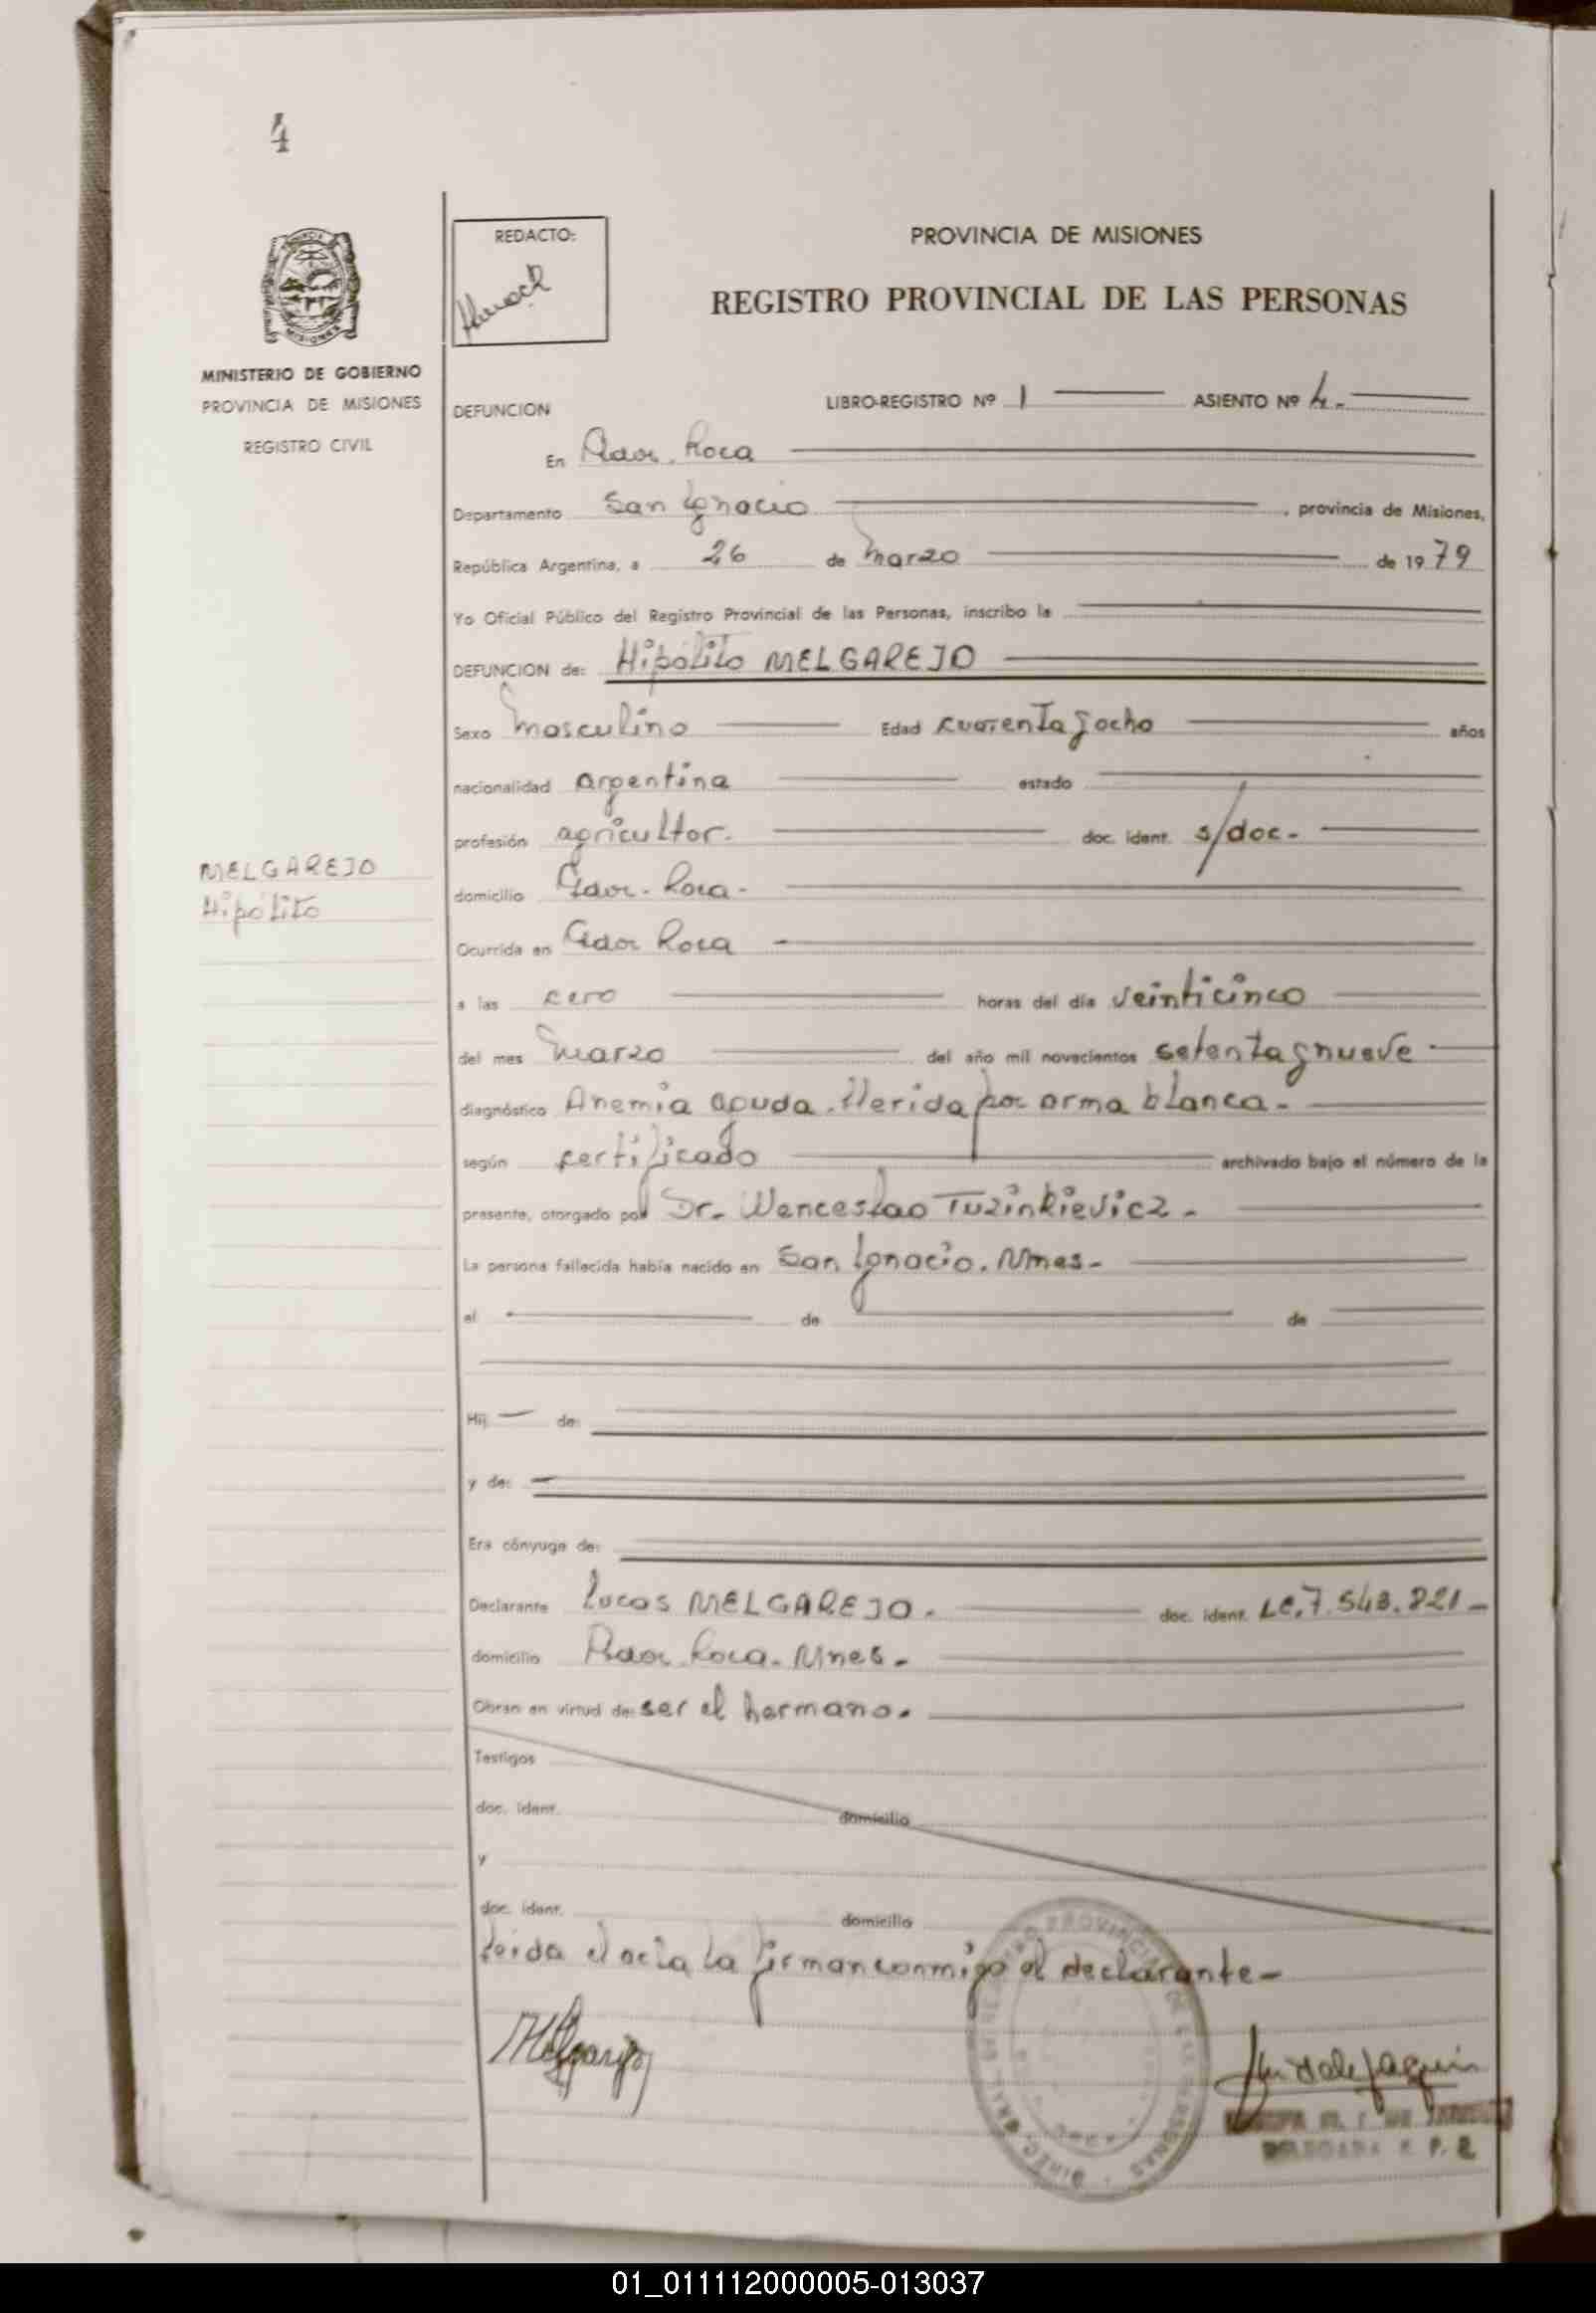 4
REDACTO:
PROVINCIA DE MISIONES
REGISTRO PROVINCIAL DE LAS PERSONAS
MINISTERIO DE GOBIERNO
PROVINCIA DE MISIONES
REGISTRO CIVIL
DEFUNCION LIBRO-REGISTRO Nº 1 ASIENTO Nº 4.-
En Gdor. Roca
Departamento San Ignacio , provincia de Misiones,
República Argentina, a 26 de Marzo de 1979
Yo Oficial Público del Registro Provincial de las Personas, inscribo la
DEFUNCION de: Hipólito MELGAREJO
Sexo Masculino Edad cuarenta y ocho años
nacionalidad argentina estado
profesión agricultor. doc. ident. s/doc.-
MELGAREJO
Hipólito
domicilio Gdor. Roca-
Ocurrida en Gdor Roca
a las cero horas del día veinticinco
del mes Marzo del año mil novecientos setenta y nueve
diagnóstico Anemia aguda. Herida por arma blanca.-
según certificado archivado bajo el número de la
presente, otorgado por Dr. Wenceslao Tuzinkievicz.-
La persona fallecida había nacido en San Ignacio. Mnes-
el de de
Hij de:
y de:
Era cónyuge de:
Declarante Lucas MELGAREJO. doc. ident. LE.7.543.821-
domicilio Gdor. Roca. Mnes.-
Obran en virtud de: ser el hermano.
Testigos
doc. ident. domicilio
y
doc. ident. domicilio
Leida el acta la firman conmigo el declarante-
01_011112000005-013037